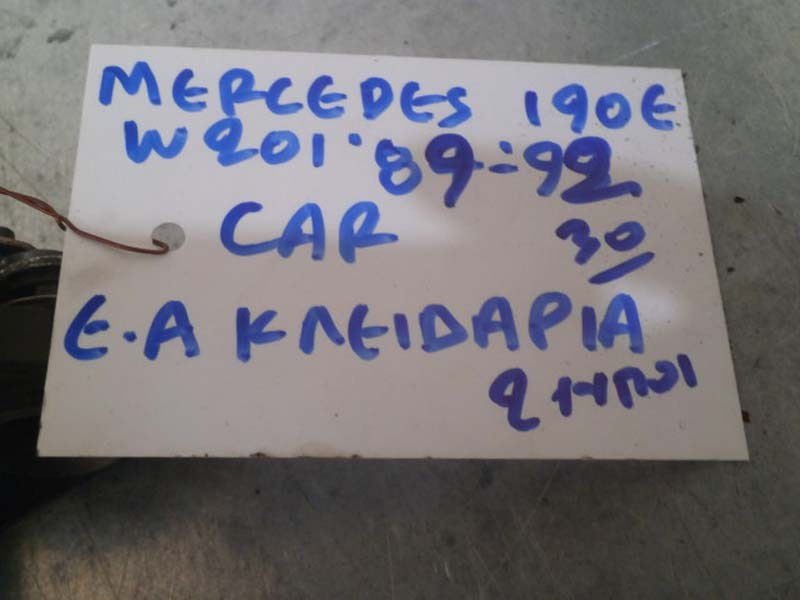 MERCEDES 190E
W201 '89-'92
CAR 30
E.A ΚΛΕΙΔΑΡΙΑ